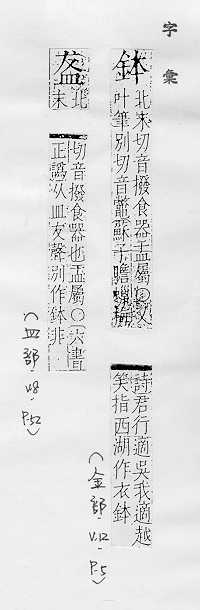 字彙
鉢
北末切音撥食器盂屬○又
叶筆別切音鼈蘇子瞻
詩君行適吳我適越
笑指西湖作衣鉢
(金部·V.12·P.5)
盋
北末
切音撥食器也盂屬○六書
正譌从皿犮聲別作鉢非
(皿部·V.8·P.52)